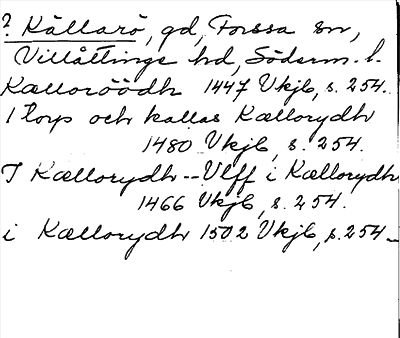 ? Källarö, gd, Forssa sn,
Villåttinge hd, Söderm. l.
Kælloröödh 1447 Vkjb, s. 254.
1 torp och kallas Kællorydh
1480 Vkjb, s. 254.
J Kællorydh -- Vlff i Kællorydh
1466 Vkjb, s. 254.
i Kællorydh 1502 Vkjb, s. 254